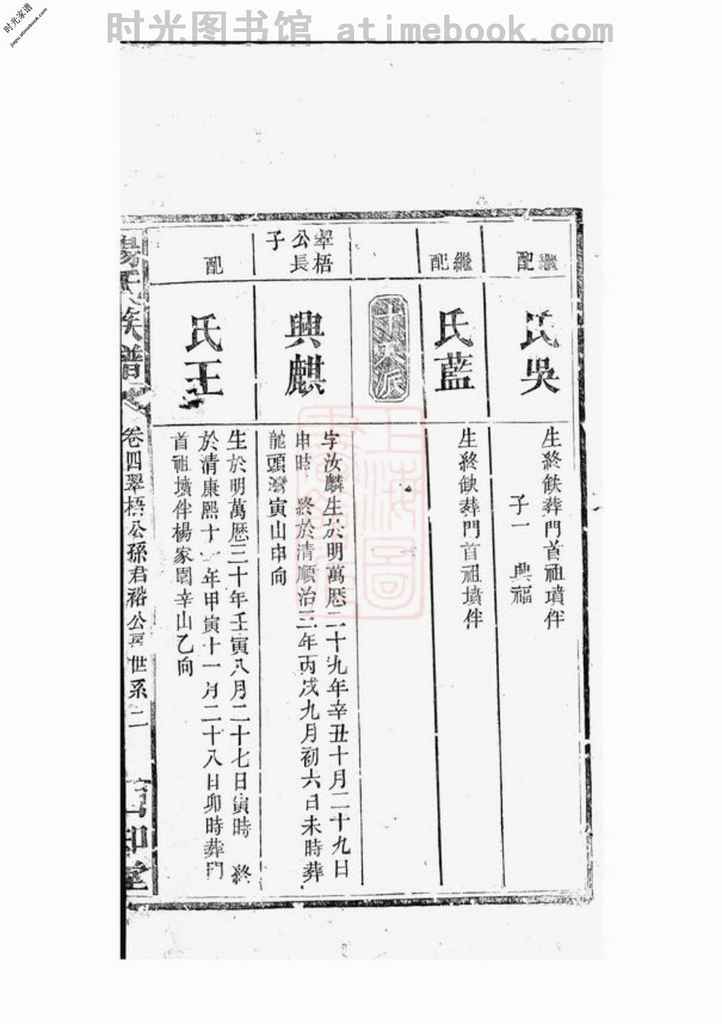 时光家谱
jiapu.atimebook.com
时光图书馆 atimebook.com
繼配
氏吳
生終缺葬門首祖墳伴
子一 興福
繼配
氏藍
生終缺葬門首祖墳伴
翠梧
公長
子
興麒
字汝麟生於明萬曆二十九年辛丑十月二十九日
申時 終於清順治三年丙戌九月初六日未時葬
龍頭灣寅山申向
配
氏王
生於明萬曆三十年壬寅八月二十七日寅時 終
於清康熙十 年甲寅十一月二十八日卯時葬門
首祖墳伴楊家園辛山乙向
楊氏族譜
卷四翠梧公孫君裕公 世系 二